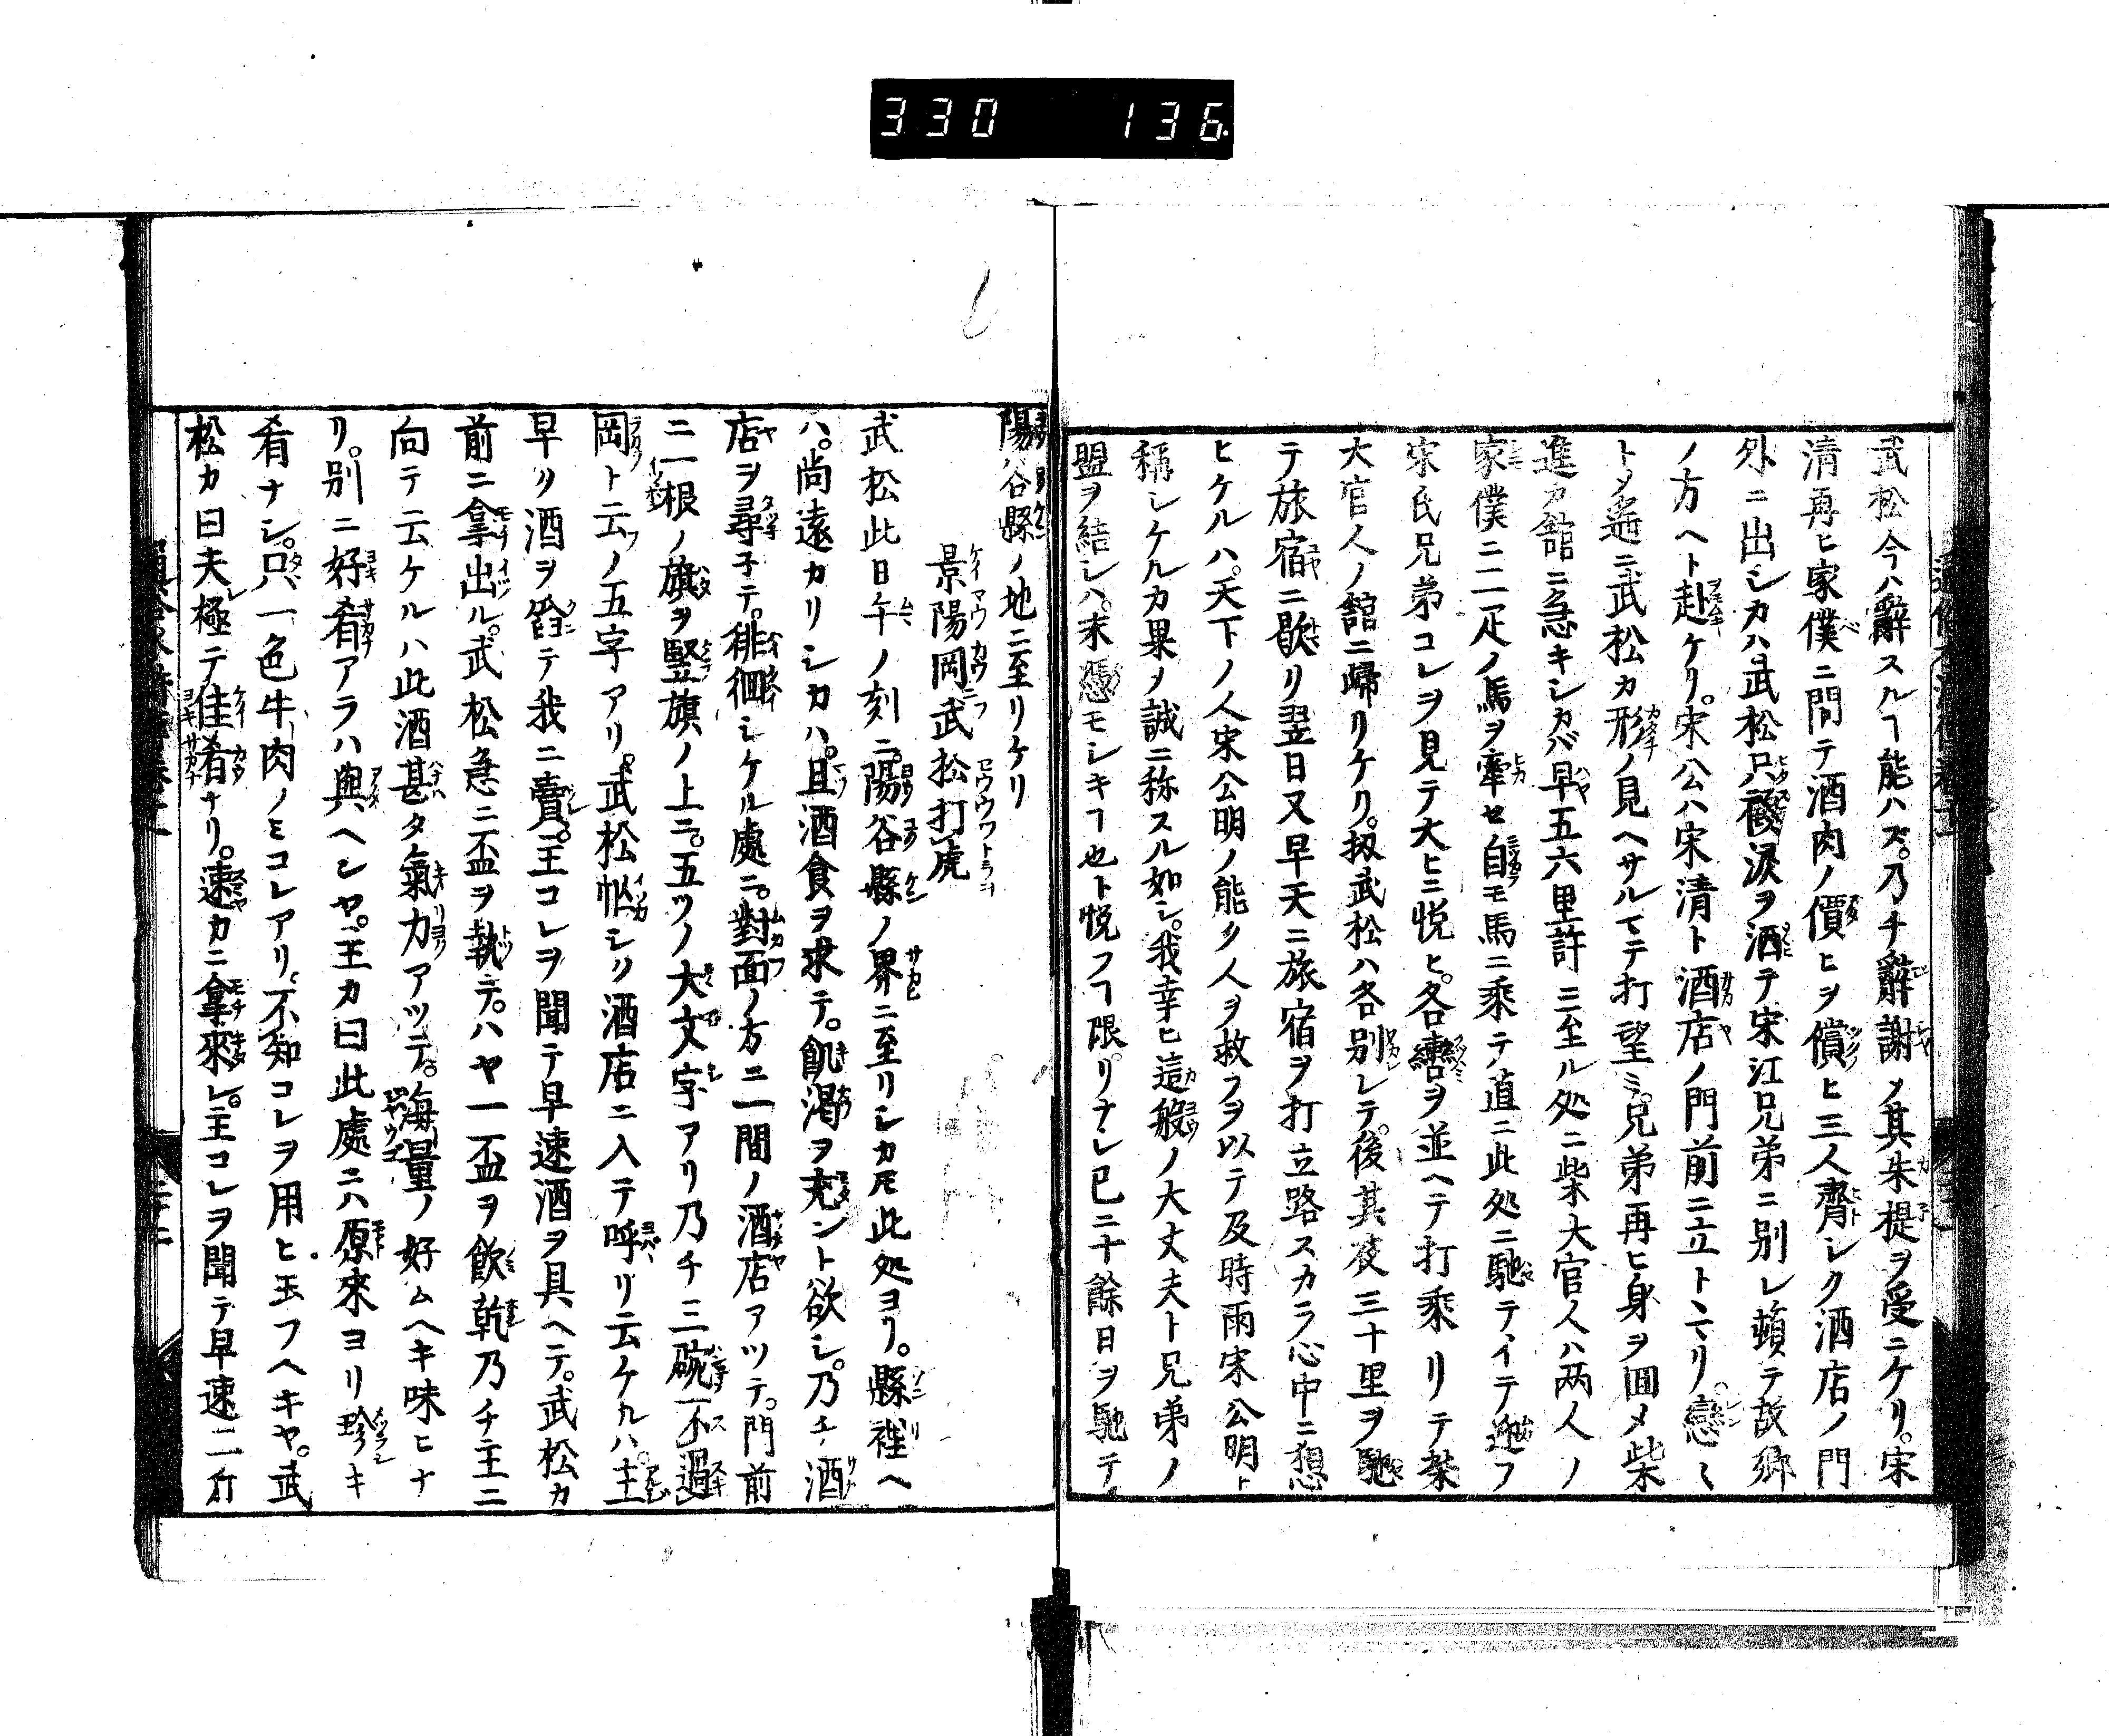 330 136
武松今ハ辭スルヿ能ハズ。乃チ辭謝メ其朱提ヲ受ニケリ。宋
清再ヒ家僕ニ問テ酒肉ノ價ヒヲ償ヒ三人齊シク酒店ノ門
外ニ出シカハ武松只顧淚ヲ洒テ宋江兄弟ニ別レ頓テ故鄉
ノ方ヘト赴ケリ。宋公ハ宋清ト酒店ノ門前ニ立トヾリ。戀〻
トメ遙ニ武松カ形ノ見ヘサルマテ打望ミ。兄弟再ヒ身ヲ回メ柴
進ア舘ニ急キシカバ早五六里許ニ至ル処ニ柴大官人ハ两人ノ
家僕ニ二疋ノ馬ヲ牽セ自モ馬ニ乘テ直ニ此処ニ馳テイテ迎フ
宋氏兄弟コレヲ見テ大ヒニ悦ヒ。各轡ヲ並ヘテ打乘リテ柴
大官人ノ舘ニ歸リケリ。扨武松ハ各別レテ。後其夜三十里ヲ馳
テ旅宿ニ歇リ翌日又早天ニ旅宿ヲ打立路スカラ心中ニ想
ヒケルハ。天下ノ人宋公明ノ能ク人ヲ救フヲ以テ及時雨宋公明ト
稱シケルカ果メ誠ニ称スル如シ。我幸ヒ這般ノ大丈夫ト兄弟ノ
盟ヲ結シハ。末憑モシキヿ也ト悦フヿ限リナシ已ニ十餘日ヲ馳テ
陽谷縣ノ地ニ至リケリ
景陽岡武松打虎
武松此日午ノ刻ニ。陽谷縣ノ界ニ至リシカ𪜈此処ヨリ。縣裡ヘ
ハ。尚遠カリシカハ。且酒食ヲ求テ。飢渴ヲ充ント欲シ。乃チ酒
店ヲ尋子テ。徘徊シケル處ニ。對面ノ方ニ一間ノ酒店アツテ。門前
ニ一根ノ旗ヲ竪旗ノ上ニ。五ツノ大文字アリ乃チ三碗不過
岡ト云フノ五字アリ。武松忙シク酒店ニ入テ呼リ云ケルハ。主
早ク酒ヲ釀テ我ニ賣。主コレヲ聞テ早速酒ヲ具ヘテ。武松カ
前ニ拿出ル。武松急ニ盃ヲ執テ。ハヤ一盃ヲ飲乾乃チ主ニ
向テ云ケルハ此酒甚タ氣力アツテ。海量ノ好ムヘキ味ヒナ
リ。別ニ好肴アラハ與ヘシヤ。主カ曰此處ニハ原來ヨリ珍キ
肴ナシ。只一色牛肉ノミコレアリ。不知コレヲ用ヒ玉フヘキヤ。武
松カ曰夫極テ佳肴ナリ。速カニ拿來レ。主コレヲ聞テ早速二斤